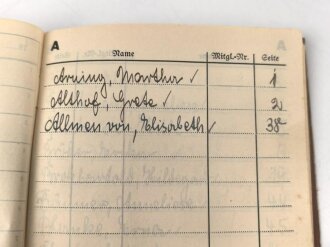 A A
Name Mitgl.-Nr. Seite
Arning, Martha ✓ 1
Althof, Grete ✓ 2
Allmen von, Elisabeth ✓ 38